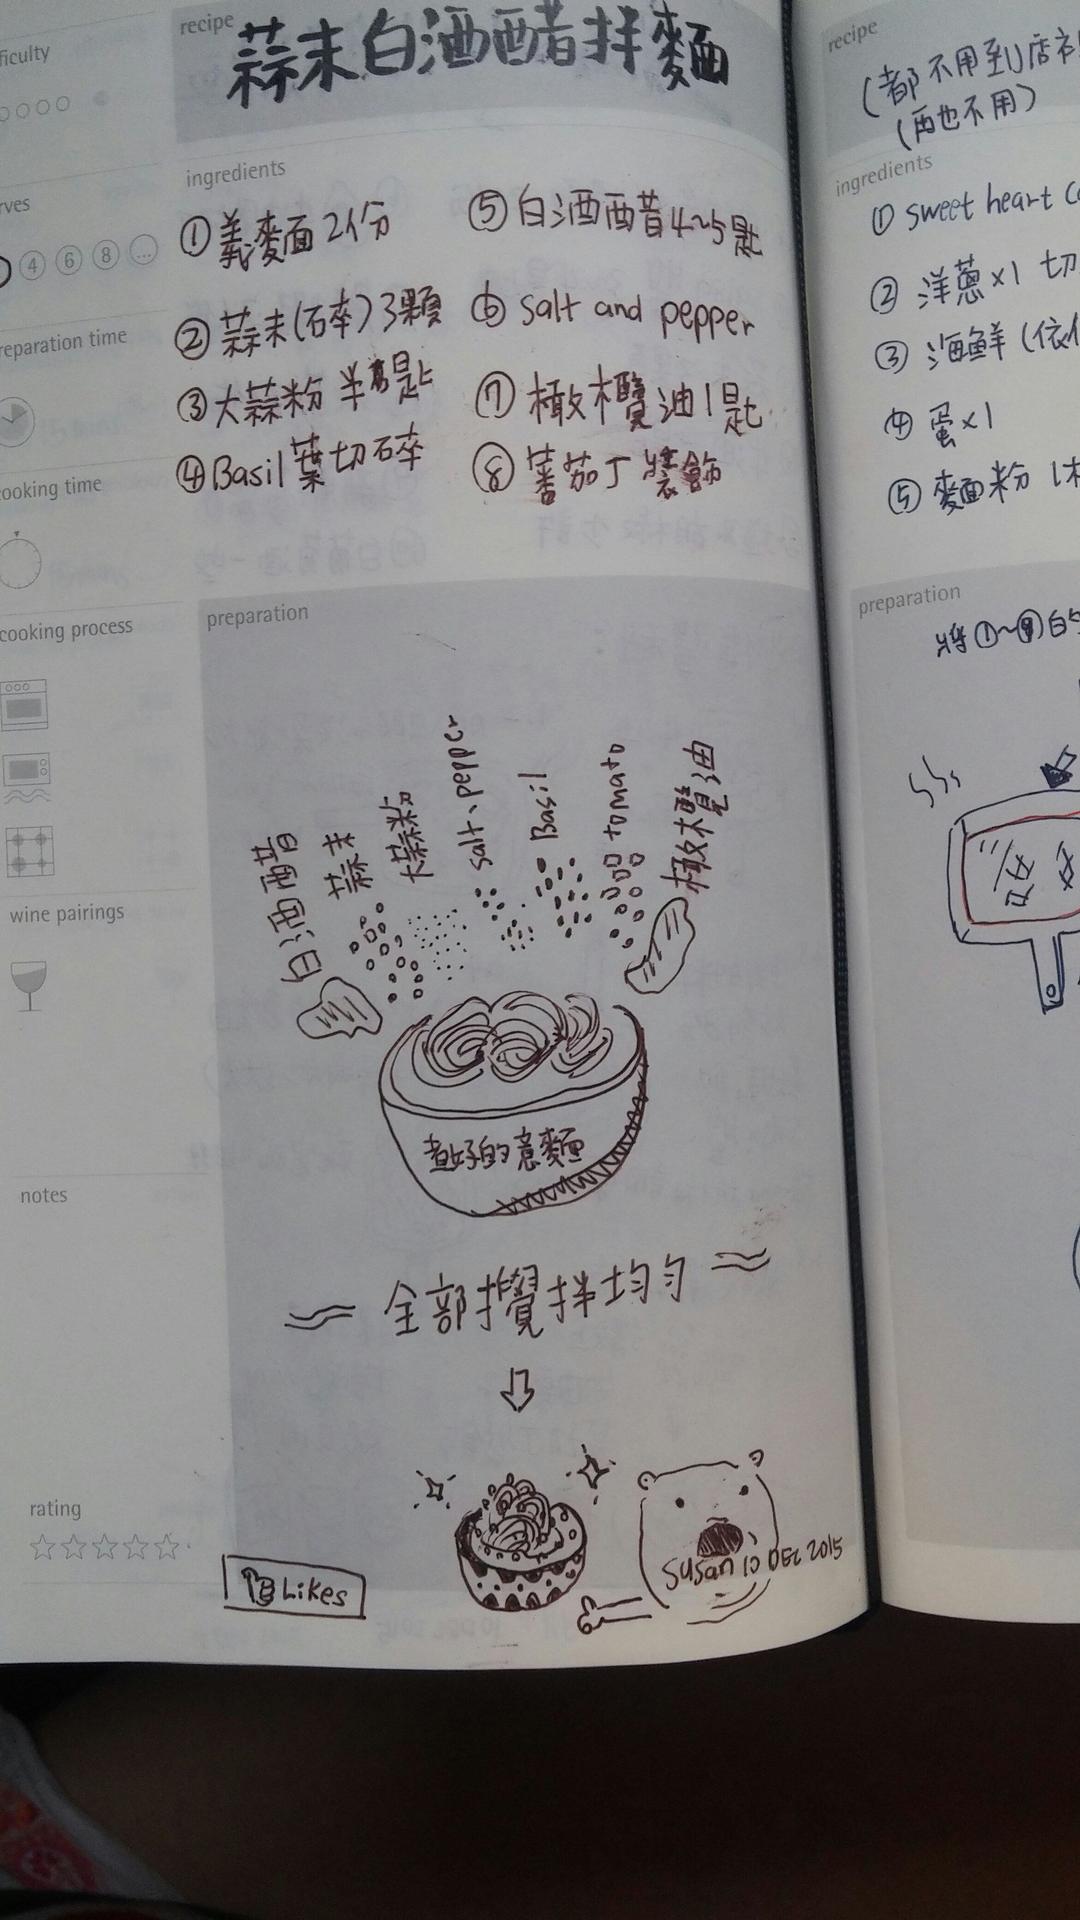 recipe
蒜末白酒醋拌麵
ficulty
rves
4 6 8 ...
reparation time
cooking time
cooking process
wine pairings
notes
rating
ingredients
①義麵2份
②蒜末(碎)3顆
③大蒜粉 半匙
④Basil葉切碎
⑤白酒醋4~5匙
⑥ salt and pepper
⑦橄欖油1匙
⑧蕃茄丁裝飾
preparation
白酒醋
蒜末
大蒜粉
salt、pepper
Basil
tomato
橄欖油
煮好的意麵
全部攪拌均勻
Likes
Susan 10 DEC 2015
recipe
(都不用到店裡
(再也不用)
ingredients
① sweet heart
② 洋蔥×1 切
③ 海鮮(依
④ 蛋×1
⑤ 麵粉 1
preparation
將①~